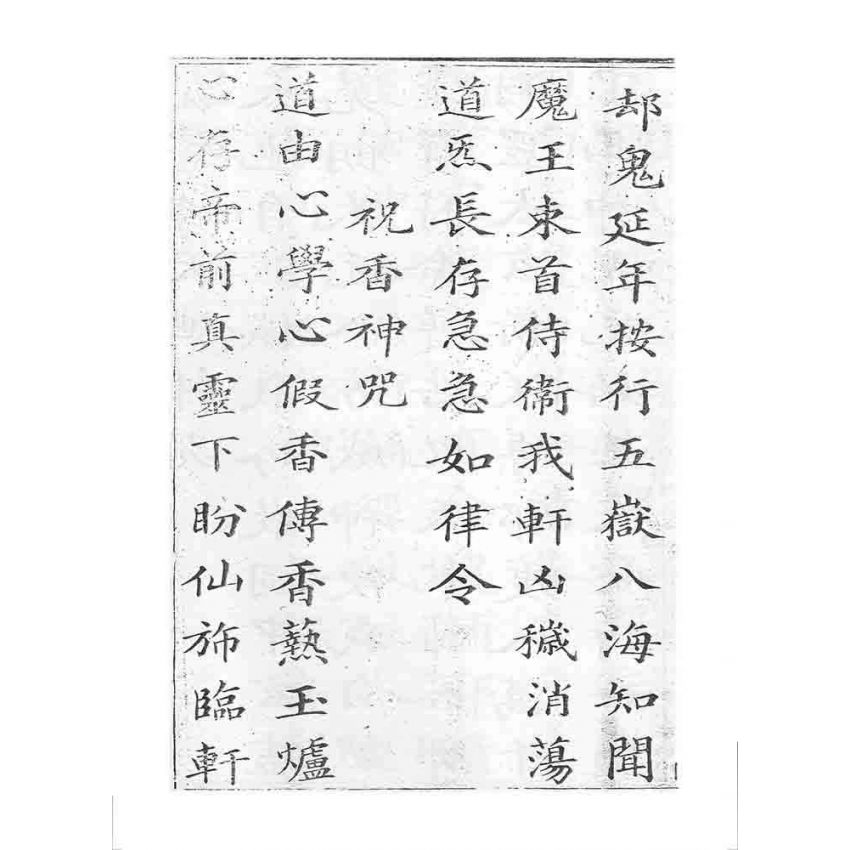 却鬼延年按行五嶽八海知聞
魔王束首侍衞我軒凶穢消蕩
道炁長存急急如律令
祝香神咒
道由心學心假香傳香爇玉爐
心存帝前真靈下盼仙斾臨軒